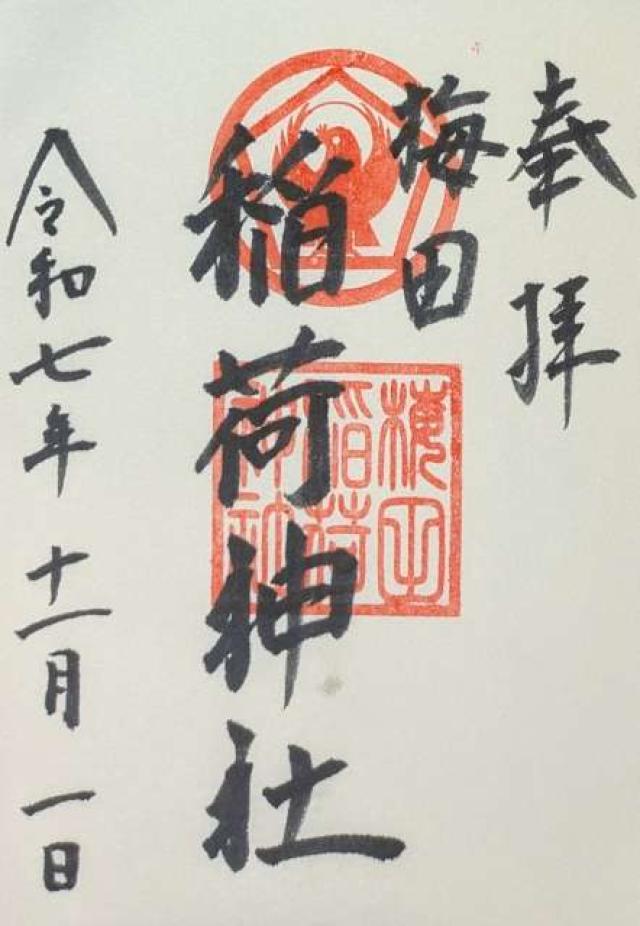 奉拝
梅田
稲荷神社
梅田
稲荷
神社
令和七年十一月一日